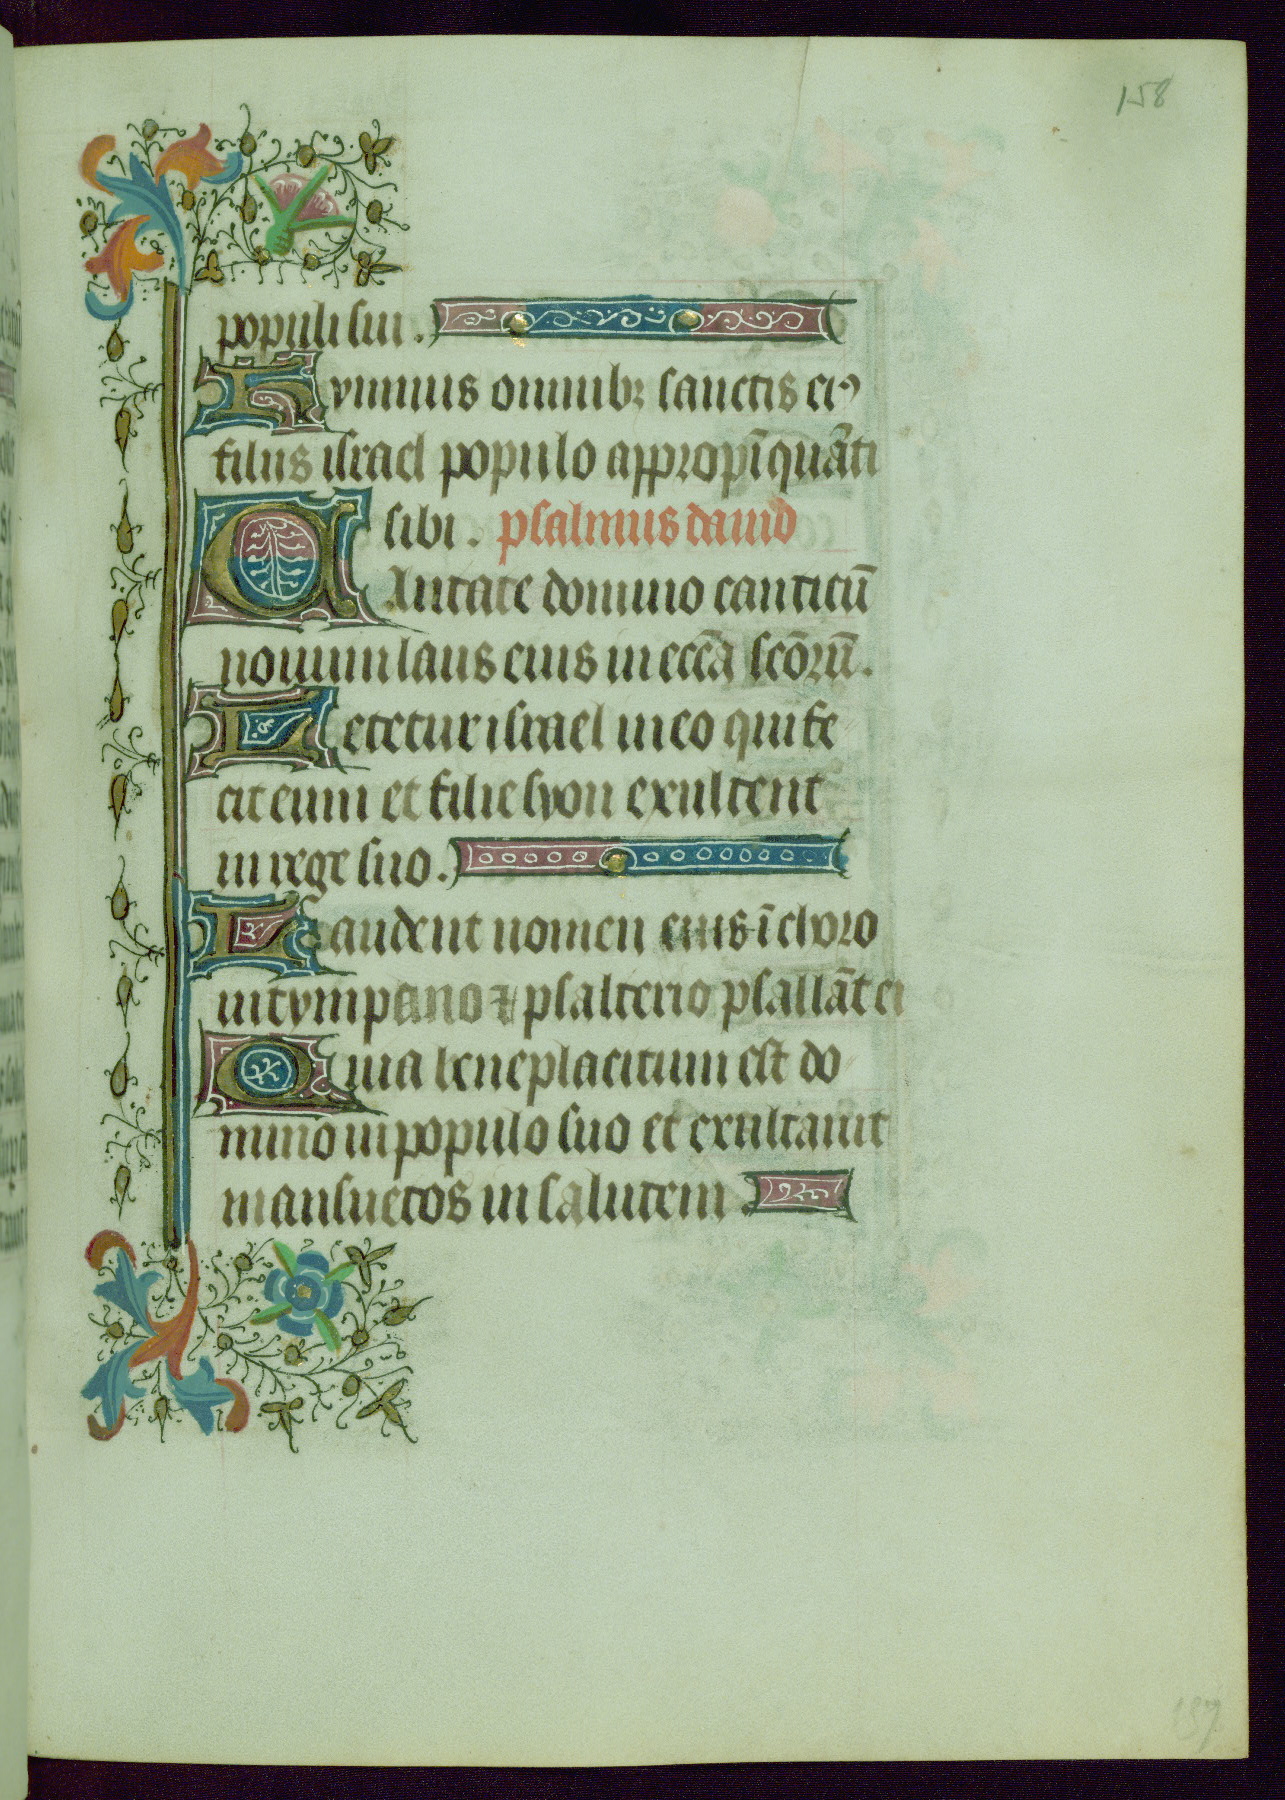 158
populi sui.
Ymnus omnibꝫ sanctis eiꝰ
filiis israel populo appropīquāti
sibi. psalmus dauid
CAntate domino canticū
nouum laus eius in eccā scōrū.
Letetur israel in eo qui fe
cit eum et filie syon exultent
in rege suo.
Laudent nomen eius ī choro
in tympano ⁊ psalterio psallāt ei
Quia beneplacitum est do
mino in populo suo et exultauit
mansuetos in salutem.
157